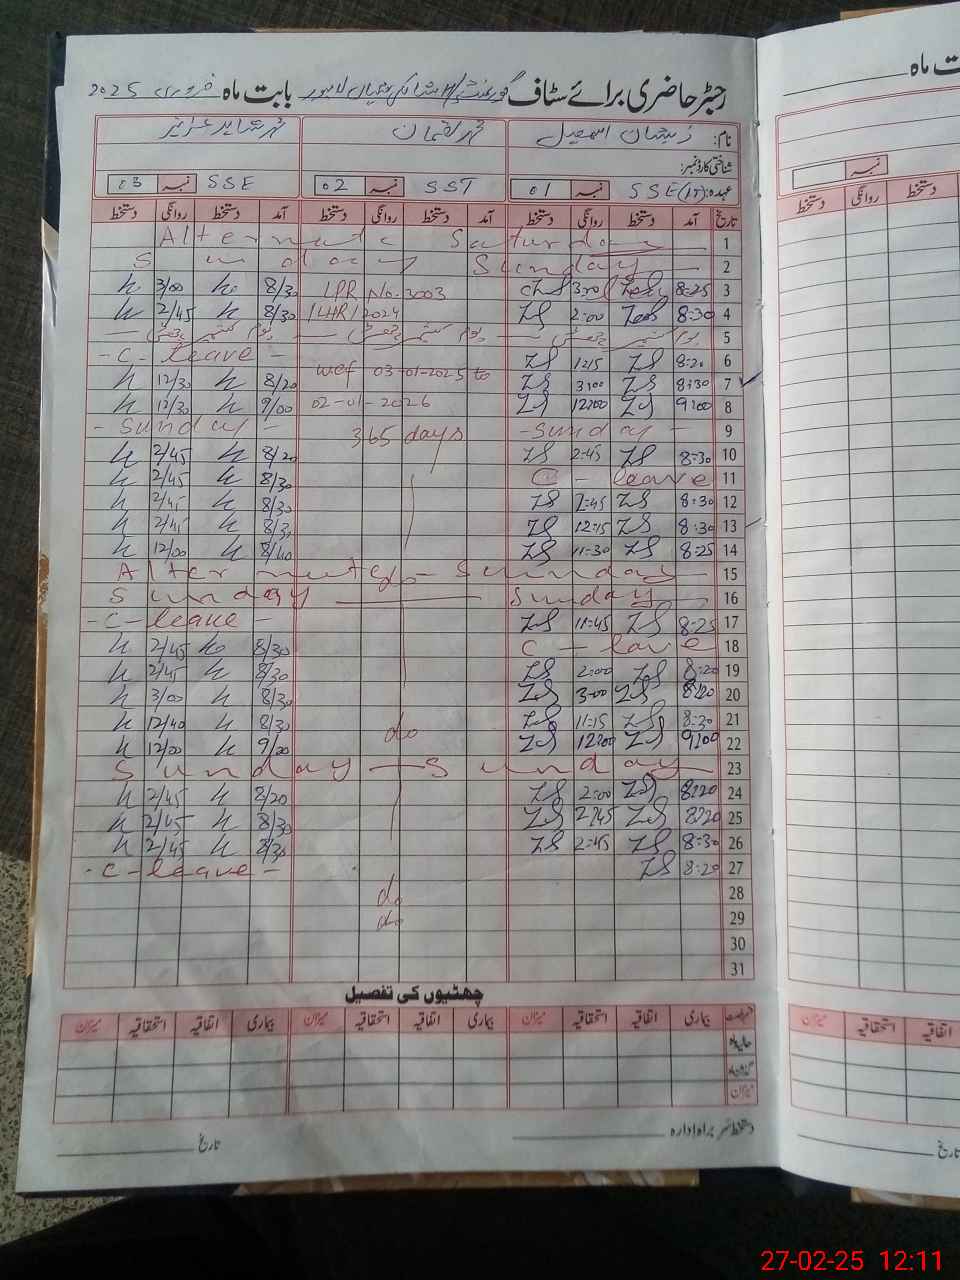 رجسٹر حاضری برائے سٹاف گورنمنٹ لاہور بابت ماہ فروری 2025
نام: ذیشان اسمعیل محمد لقمان محمد شاہد عزیز
شناختی کارڈ نمبر:
عہدہ: SSE(IT) نمبر 01 SST نمبر 02 SSE نمبر 03
تاریخ آمد دستخط روانگی دستخط آمد دستخط روانگی دستخط آمد دستخط روانگی دستخط
1 Alternate Saturday
2 Sunday Sunday
3 8:25 3:00 LPR No. 3003 8/30 3/00
4 8:30 ZS 2:00 ZS /LHR/2024 8/30 2/45
5 یوم کشمیر چھٹی یوم کشمیر چھٹی
6 8:20 ZS 12:15 ZS - C - leave -
7 8:30 ZS 3:00 ZS wef 03-01-2025 to 8/20 12/30
8 9:00 ZS 12:00 ZS 02-01-2026 9/00 12/30
9 - Sunday - - Sunday -
10 8:30 ZS 2:45 ZS 365 days 8/20 2/45
11 C - leave 8/30 2/45
12 8:30 ZS 2:45 ZS 8/30 2/45
13 8:30 ZS 12:15 ZS 8/30 2/45
14 8:25 ZS 11:30 ZS 8/40 12/00
15 Alternate do - Sunday
16 Sunday Sunday
17 8:25 ZS 11:45 ZS - C - leave -
18 C - leave 8/30 2/45
19 8:20 ZS 2:00 ZS 8/30 2/45
20 8:20 ZS 3:00 ZS 8/30 3/00
21 8:30 ZS 11:15 ZS 8/30 12/40
22 9:00 ZS 12:00 ZS do 9/00 12/00
23 Sunday Sunday
24 8:20 ZS 2:00 ZS 8/20 2/45
25 8:20 ZS 2:45 ZS 8/30 2/45
26 8:30 ZS 2:45 ZS 8/30 2/45
27 8:20 ZS - C - leave -
28 do
29 do
30
31
چھٹیوں کی تفصیل
بیماری اتفاقیہ استحقاقیہ میزان بیماری اتفاقیہ استحقاقیہ میزان بیماری اتفاقیہ استحقاقیہ میزان
حالیہ ماہ
گزشتہ ماہ
میزان
دستخط سربراہ ادارہ تاریخ
ت ماہ
نمبر
دستخط روانگی دستخط
اتفاقیہ استحقاقیہ میزان
تاریخ
27-02-25 12:11